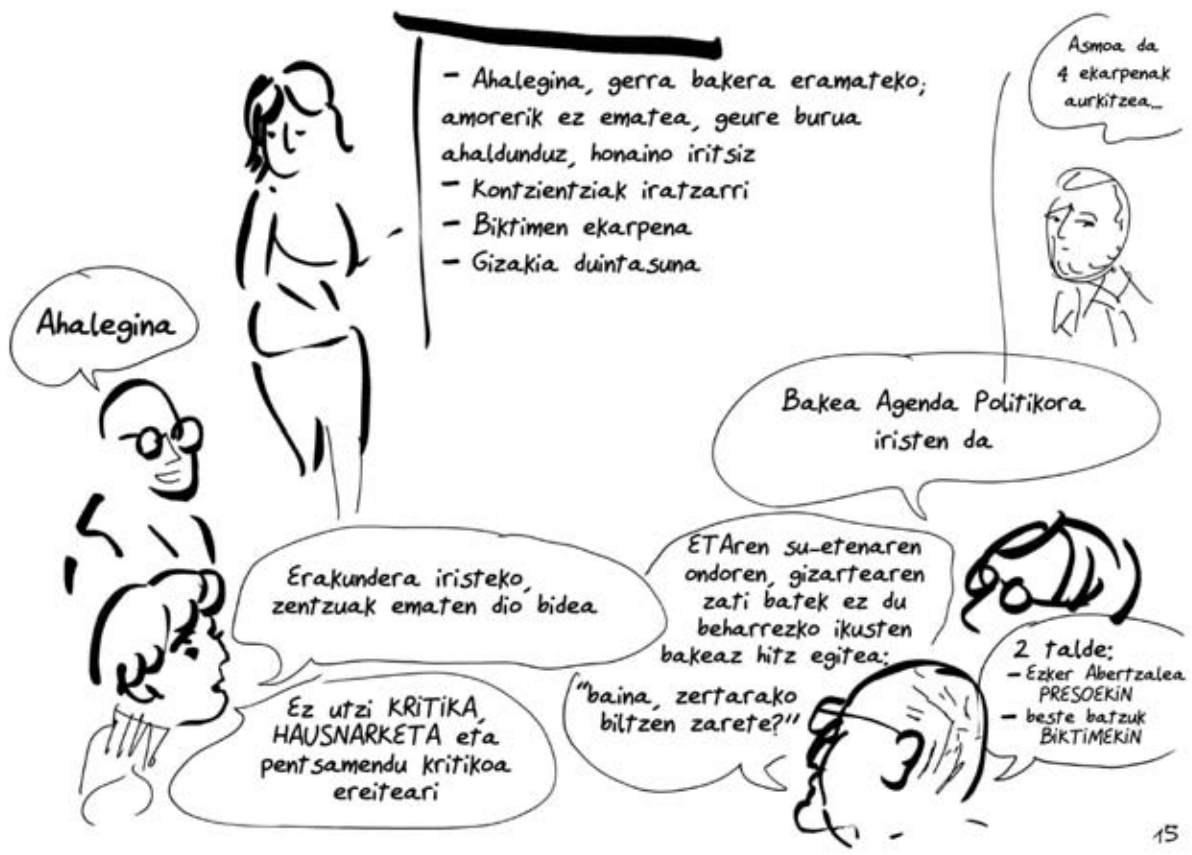 - Ahalegina, gerra bakera eramateko;
amorerik ez ematea, geure burua
ahaldunduz, honaino iritsiz
- Kontzientziak iratzarri
- Biktimen ekarpena
- Gizakia duintasuna
Asmoa da
4 ekarpenak
aurkitzea...
Ahalegina
Bakea Agenda Politikora
iristen da
Erakundera iristeko,
zentzuak ematen dio bidea
Ez utzi KRITIKA,
HAUSNARKETA eta
pentsamendu kritikoa
ereiteari
ETAren su-etenaren
ondoren, gizartearen
zati batek ez du
beharrezko ikusten
bakeaz hitz egitea:
"baina, zertarako
biltzen zarete?"
2 talde:
- Ezker Abertzalea
PRESOEKIN
- beste batzuk
BIKTIMEKIN
15